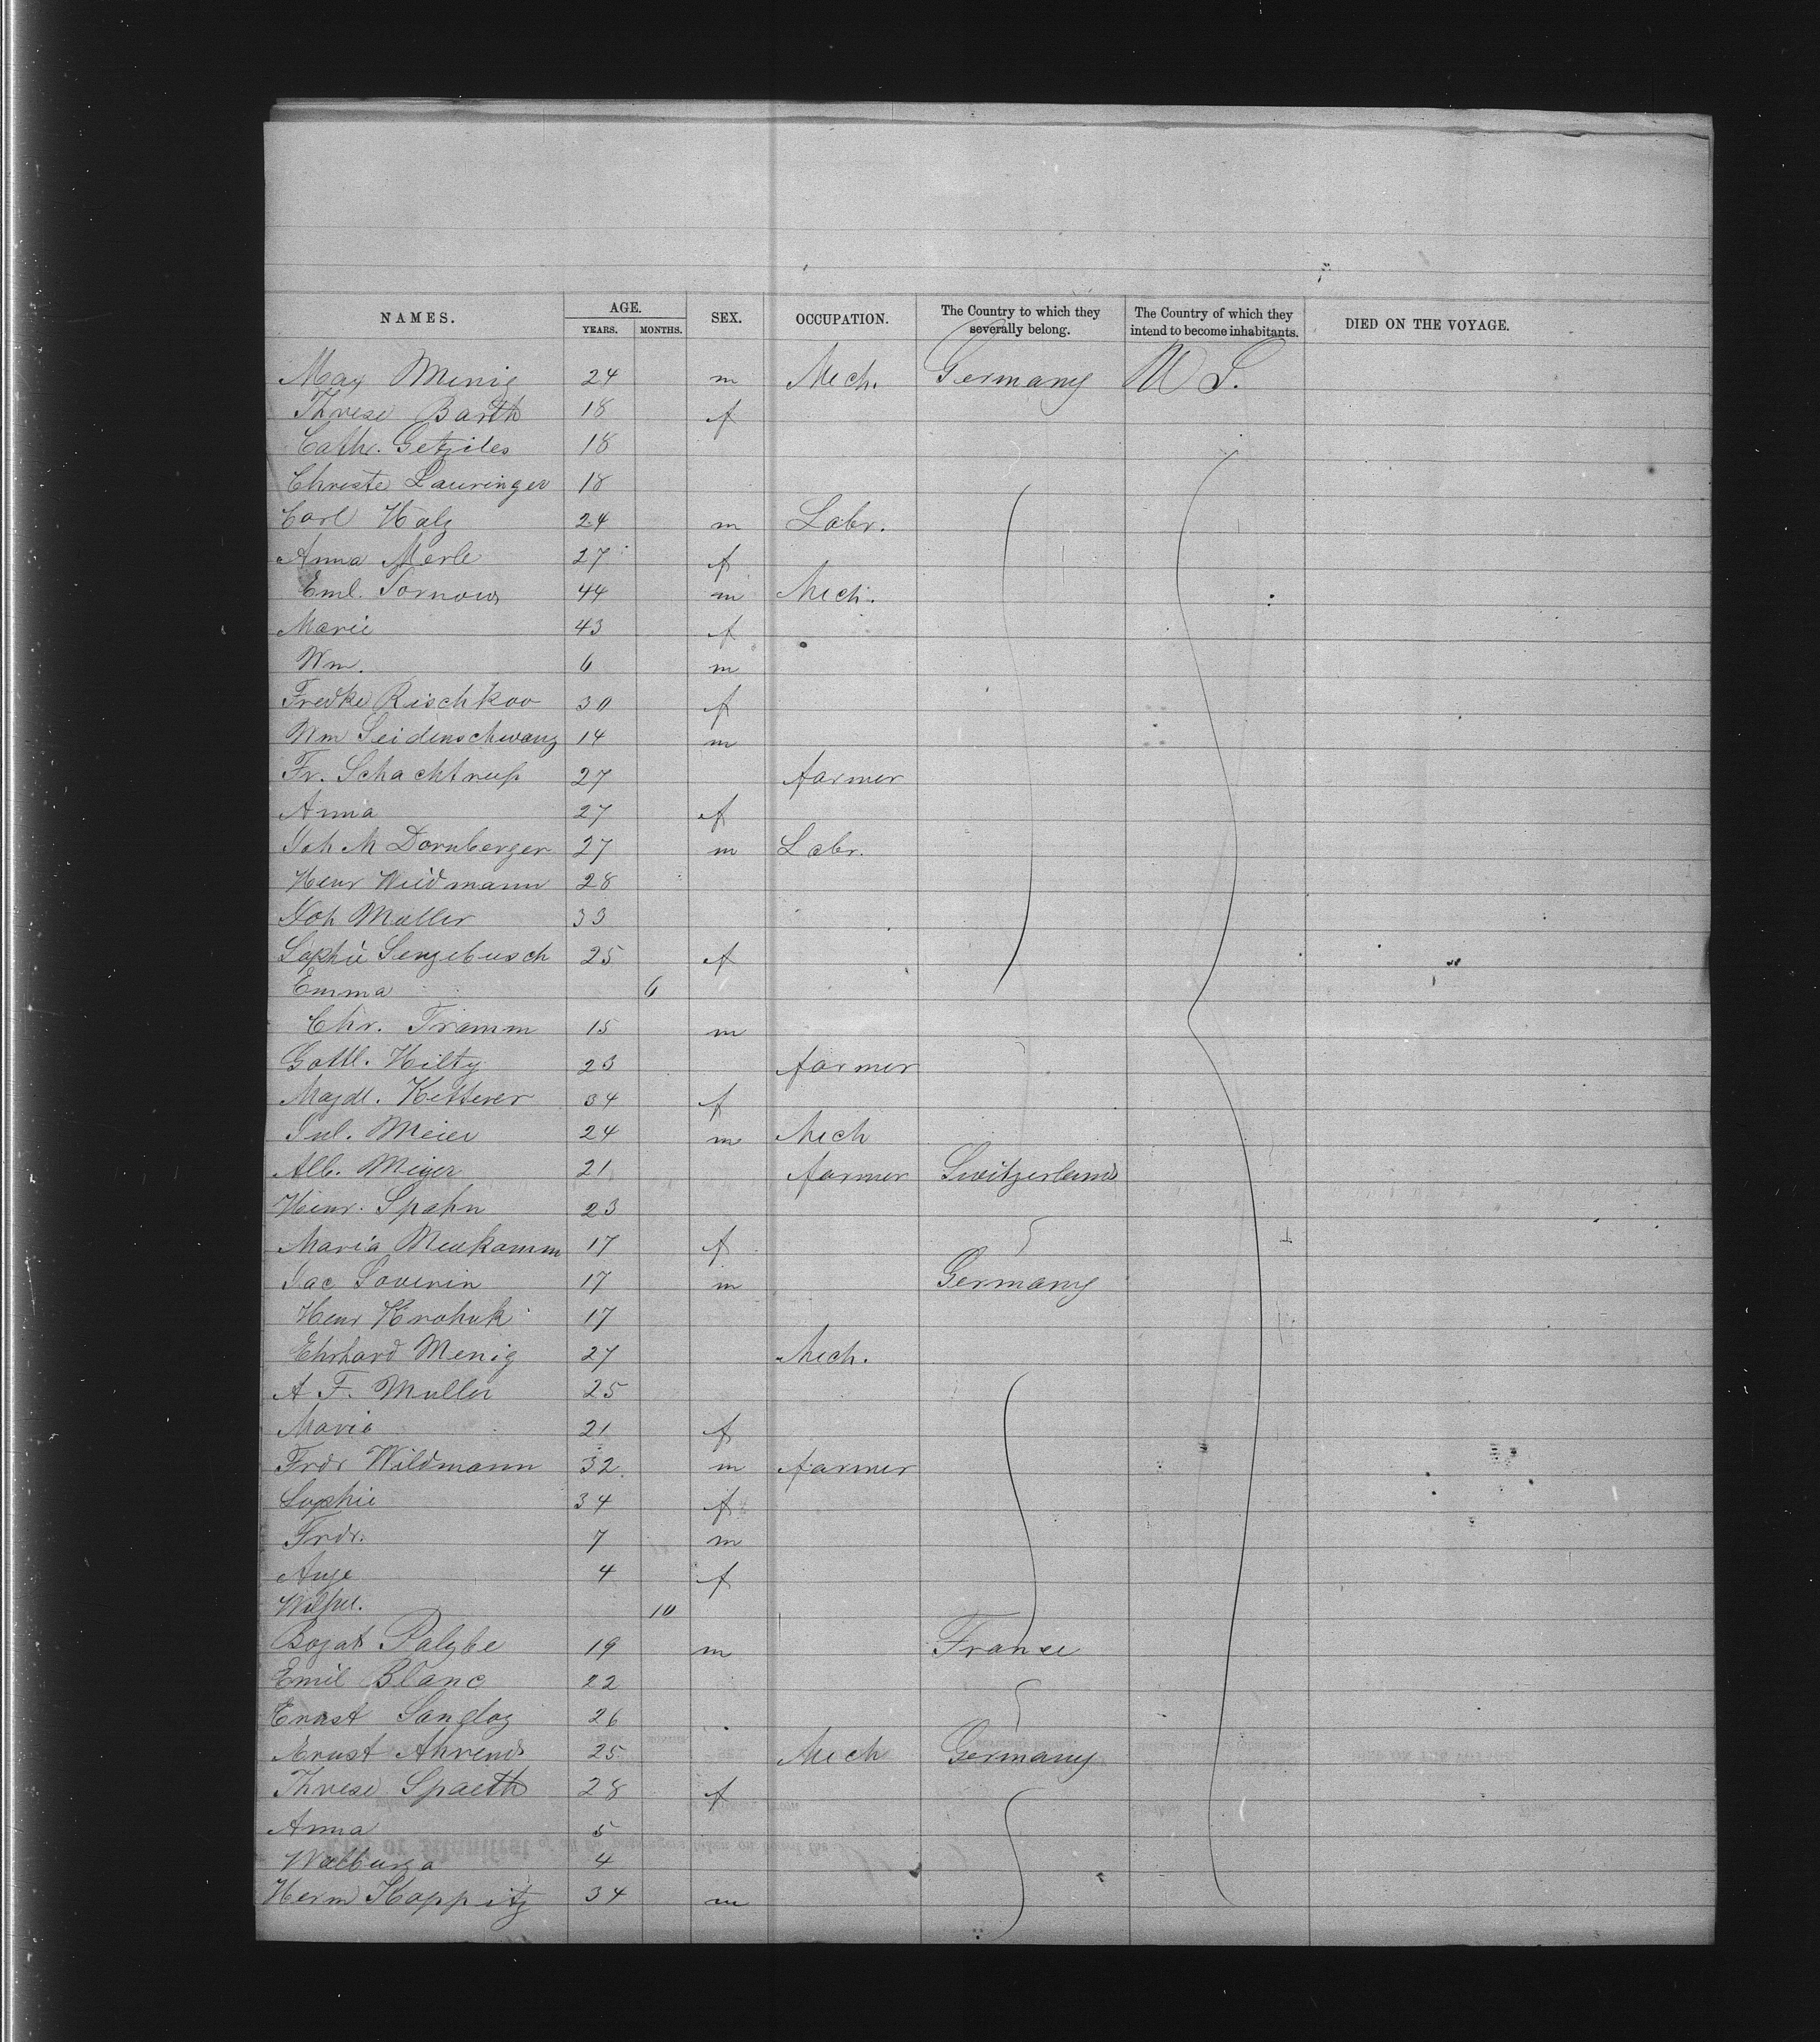 NAMES. AGE. SEX. OCCUPATION. The Country to which they severally belong. The Country of which they intend to become inhabitants. DIED ON THE VOYAGE.
YEARS. MONTHS.
Max Menig 24 m Mech. Germany U S.
Threse Barth 18 f
Cath. Getziles 18
Christe Lauringer 18
Carl Halz 24 m Labr.
Anna Merle 27 f
Eml. Tornow 44 m Mech.
Marie 43 f
Wm. 6 m
Fredke Rischkoo 30 f
Wm Seidenschwang 14 m
Fr. Schachtrup 27 farmer
Anna 27 f
Joh M Dornberger 27 m Labr.
Henr Weidmann 28
Joh Muller 33
Sophie Sengebusch 25 f
Emma 6
Chr. Tramm 15 m
Gottl. Hilty 23 farmer
Magdl. Ketterer 34 f
Jul. Meier 24 m Mech
Alb. Meyer 21 farmer Switzerland
Heinr. Spahn 23
Maria Meukamm 17 f
Jac Soverin 17 m Germany
Henr Krohuk 17
Ehrhard Menig 27 Mech.
A F. Muller 25
Maria 21 f
Frdr Wildmann 32 m farmer
Sophie 34 f
Frdr. 7 m
Auge 4 f
Wilhel. 10
Bogat Palybe 19 m France
Emil Blanc 22
Ernst Sandoz 26
Ernst Ahrends 25 Mech Germany
Threse Spaeth 28 f
Anna 5
Walburga 4
Herm Kappitz 34 m